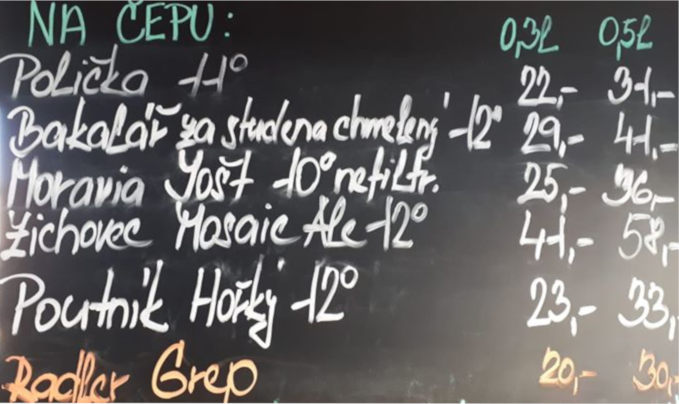 NA ČEPU: 0,3l 0,5l
Polička 11° 22,- 31,-
Bakalář za studena chmelený 12° 29,- 41,-
Moravia Yošt 10° nefiltr. 25,- 36,-
Zichovec Mosaic Ale 12° 41,- 58,-
Poutník Hořký 12° 23,- 33,
Radler Grep 20,- 30,